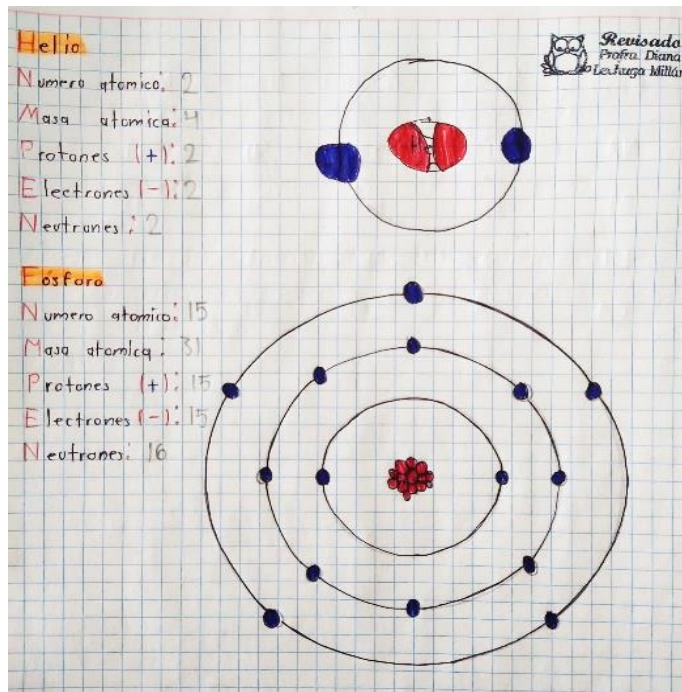 Helio
Numero atomico: 2
Masa atomica: 4
Protones (+): 2
Electrones (-): 2
Neutrones: 2
Revisado
Profra. Diana
Lechuga Millán
Fósforo
Numero atomico: 15
Masa atomica: 31
Protones (+): 15
Electrones (-): 15
Neutrones: 16